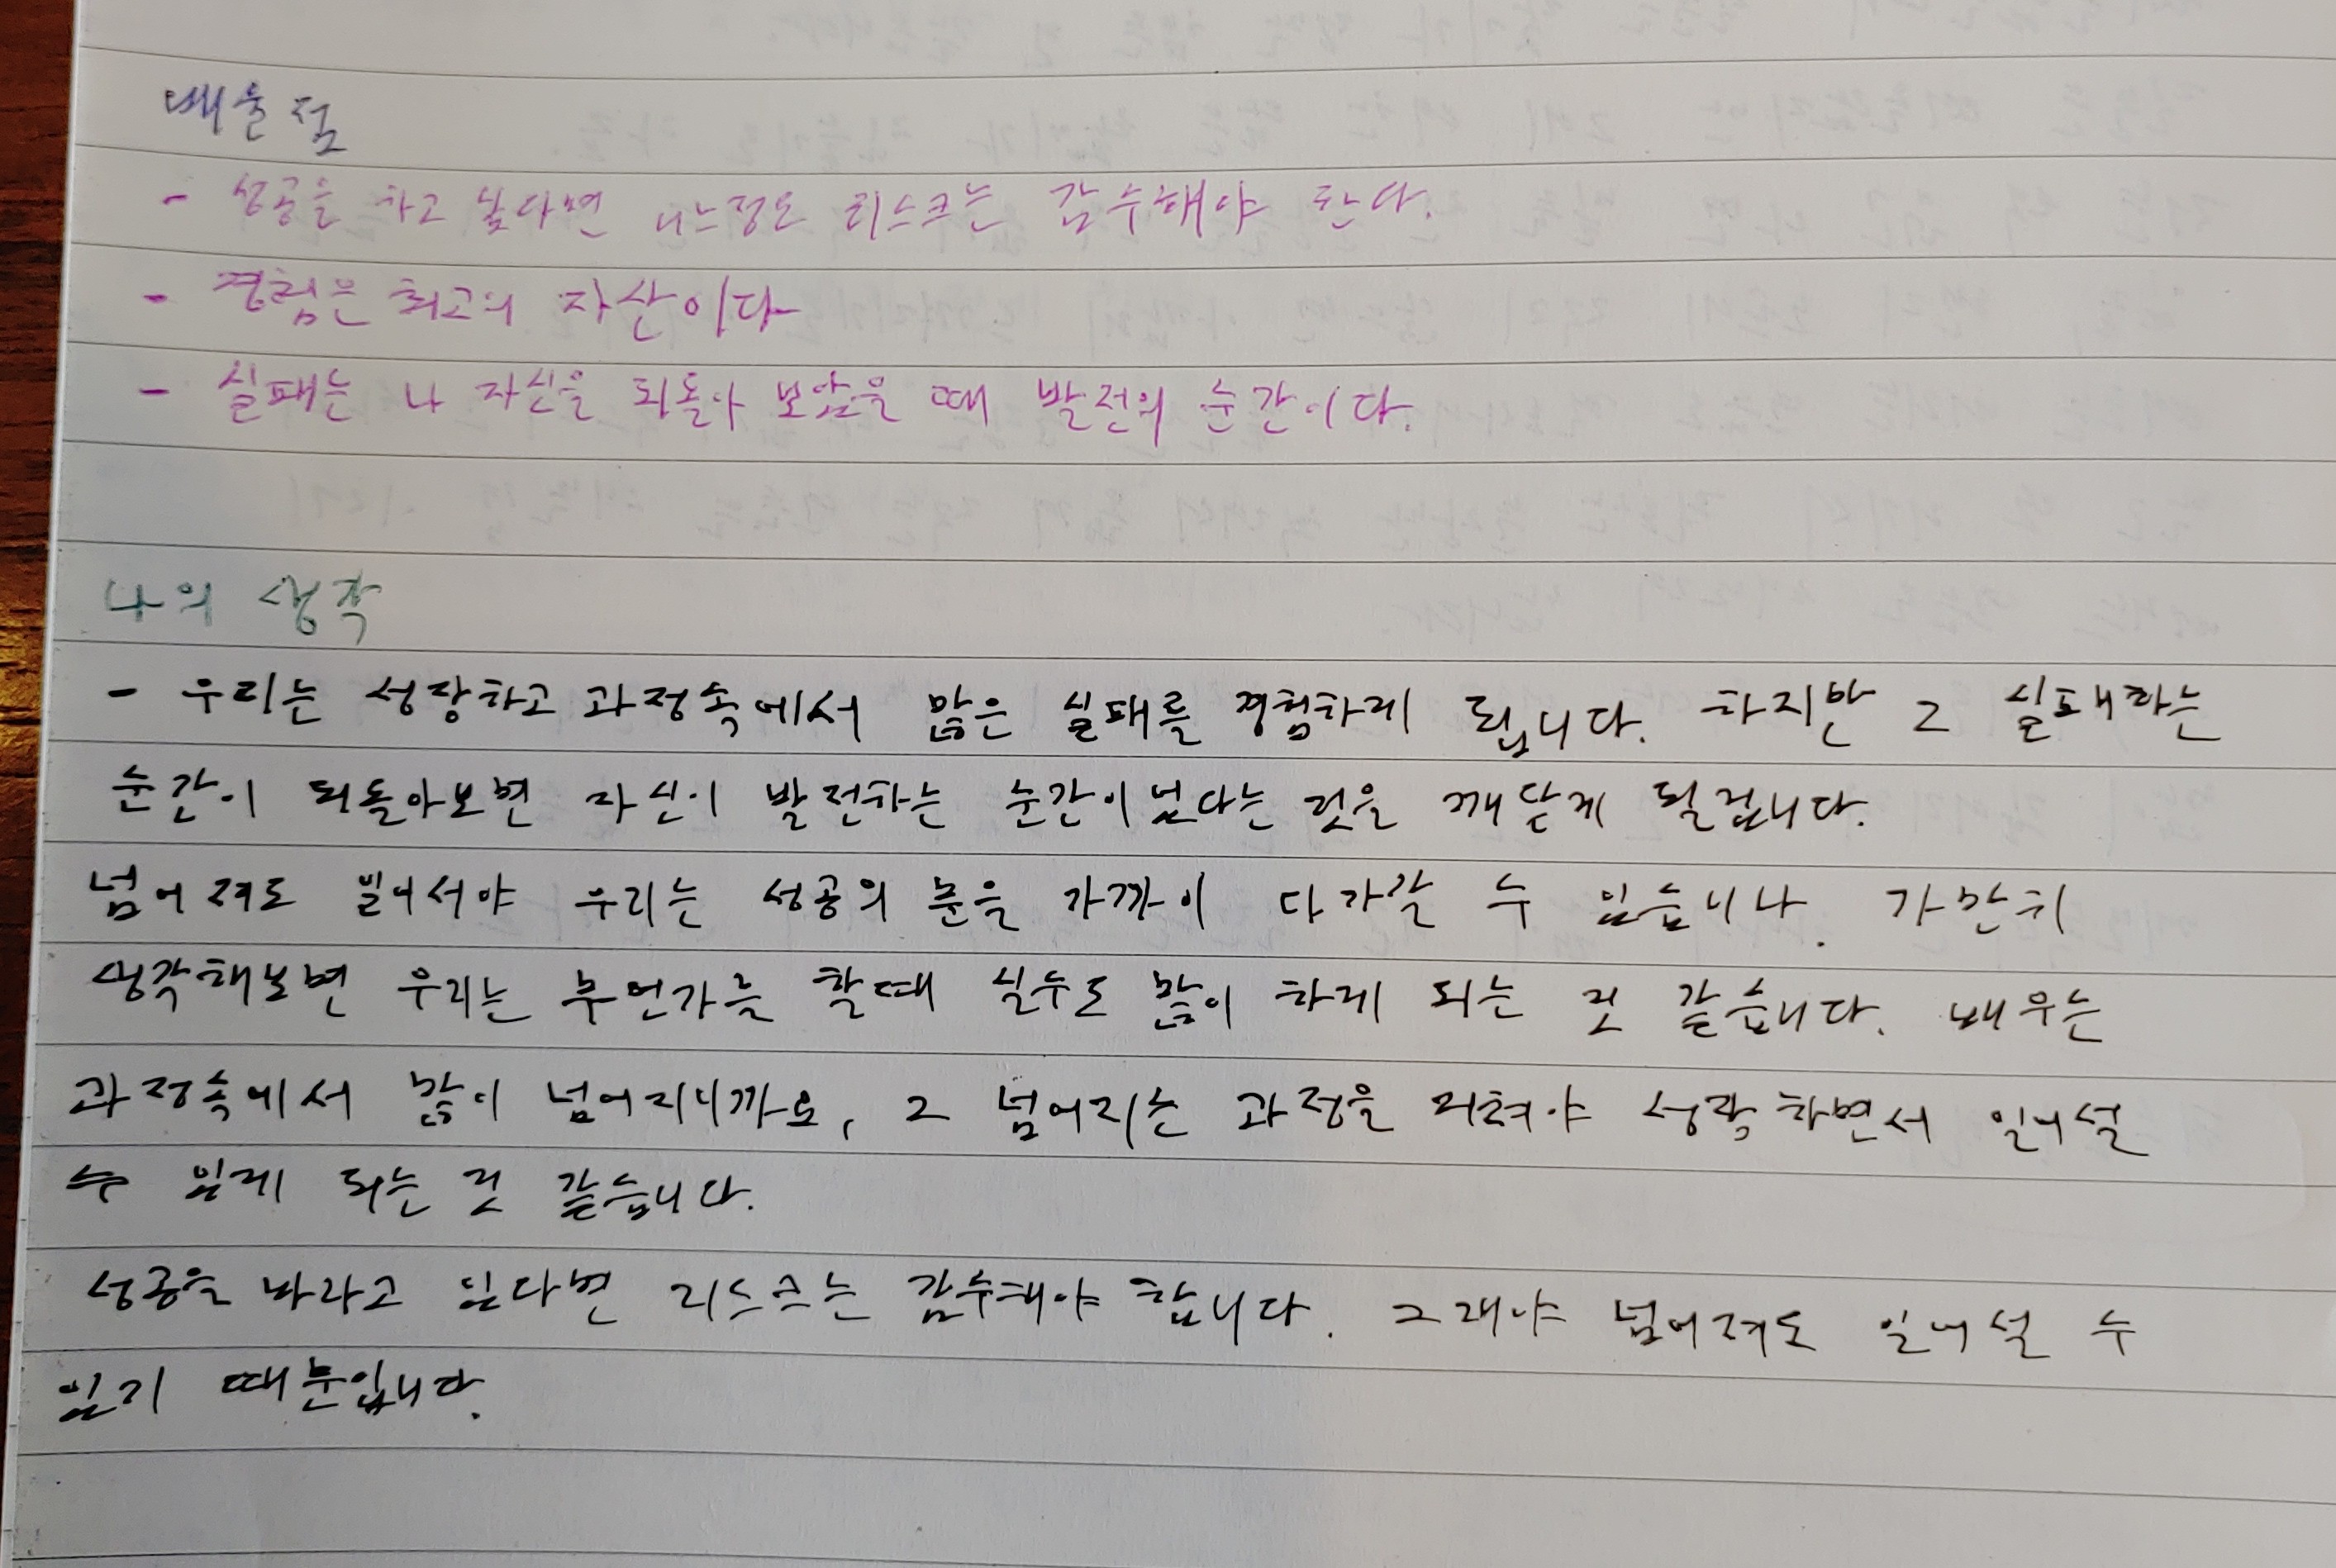 배울점
- 성공을 하고 싶다면 어느정도 리스크는 감수해야 한다.
- 경험은 최고의 자산이다
- 실패는 나 자신을 되돌아 보았을 때 발전의 순간이다.
나의 생각
- 우리는 성장하고 과정속에서 많은 실패를 경험하게 됩니다. 하지만 그 실패하는
순간이 되돌아보면 자신이 발전하는 순간이었다는 것을 깨닫게 될겁니다.
넘어져도 일어서야 우리는 성공의 문을 가까이 다가갈 수 있습니다. 가만히
생각해보면 우리는 무언가를 할때 실수도 많이 하게 되는 것 같습니다. 배우는
과정속에서 많이 넘어지니까요, 그 넘어지는 과정을 거쳐야 성장하면서 일어설
수 있게 되는 것 같습니다.
성공을 바라고 있다면 리스크는 감수해야 합니다. 그래야 넘어져도 일어설 수
있기 때문입니다.